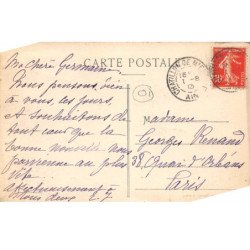 CARTE POSTALE
Ma chère Germaine
Nous pensons bien
à vous, les jours,
et souhaitons de
tout cœur que la
bonne nouvelle nous
parvienne au plus
vite
Affectueusement à
vous deux
AIN
Madame
Georges Renand
38, Quai d'Orléans
Paris